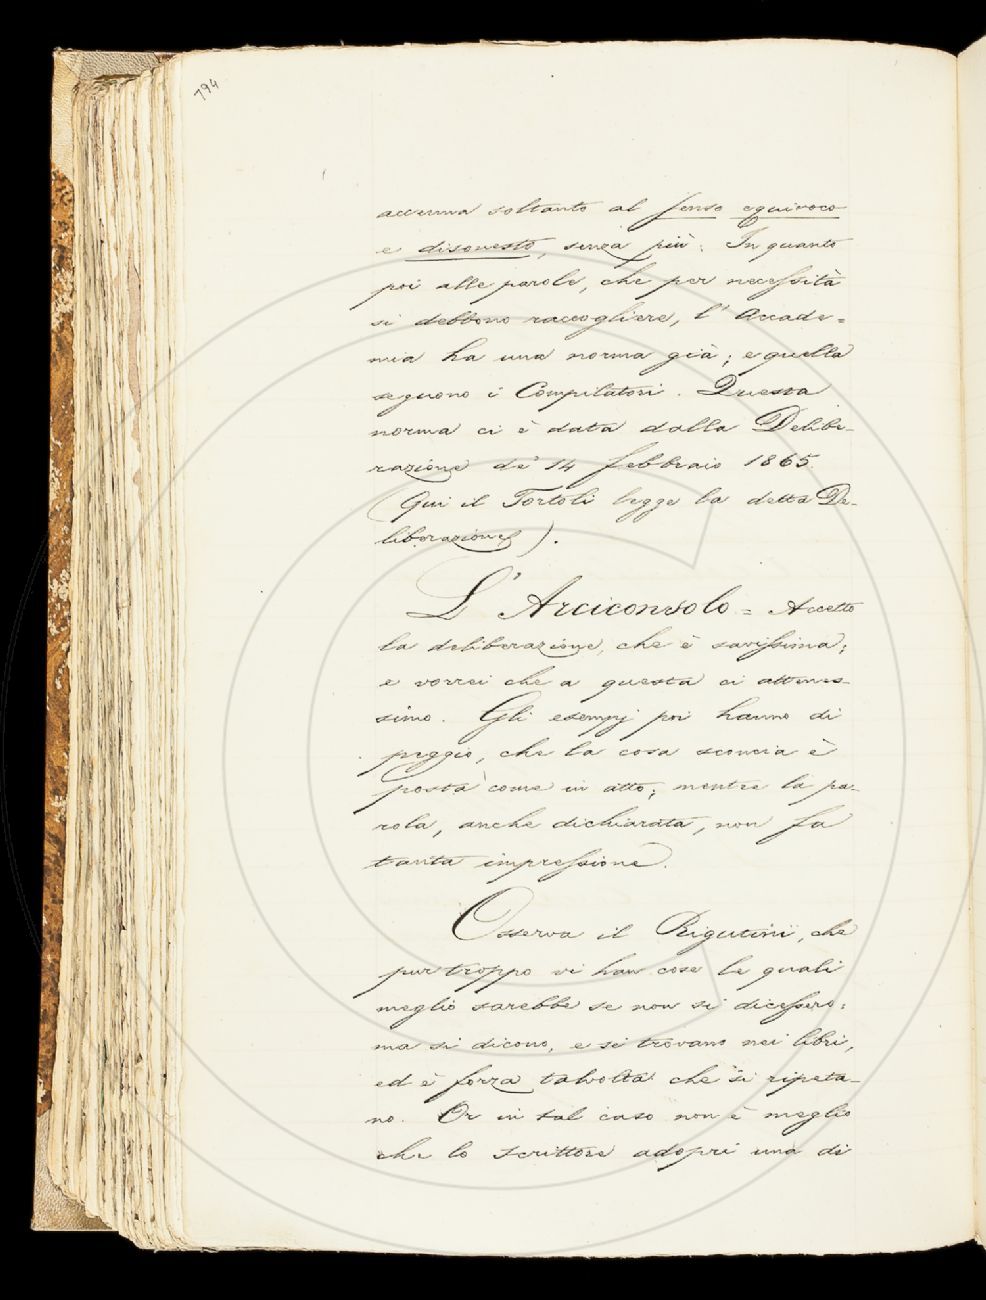 794
accenna soltanto al senso equivoco
e disonesto, senza più. In quanto
poi alle parole, che per necessità
si debbono raccogliere, l'Accade=
mia ha una norma già; e quella
seguono i Compilatori. Questa
norma ci è data dalla Delibe-
razione de' 14 febbraio 1865.
(Qui il Tortoli legge la detta De-
liberazione).
L'Arciconsolo = Accetto
la deliberazione, che è savissima;
e vorrei che a questa ci attenes-
simo. Gli esempj poi hanno di
peggio, che la cosa sconcia è
posta come in atto; mentre la pa-
rola, anche dichiarata, non fa
tanta impressione.
Osserva il Rigutini, che
pur troppo vi han cose le quali
meglio sarebbe se non si dicessero:
ma si dicono, e si trovano nei libri,
ed è forza talvolta che si ripeta-
no. Or in tal caso non è meglio
che lo scrittore adopri una di